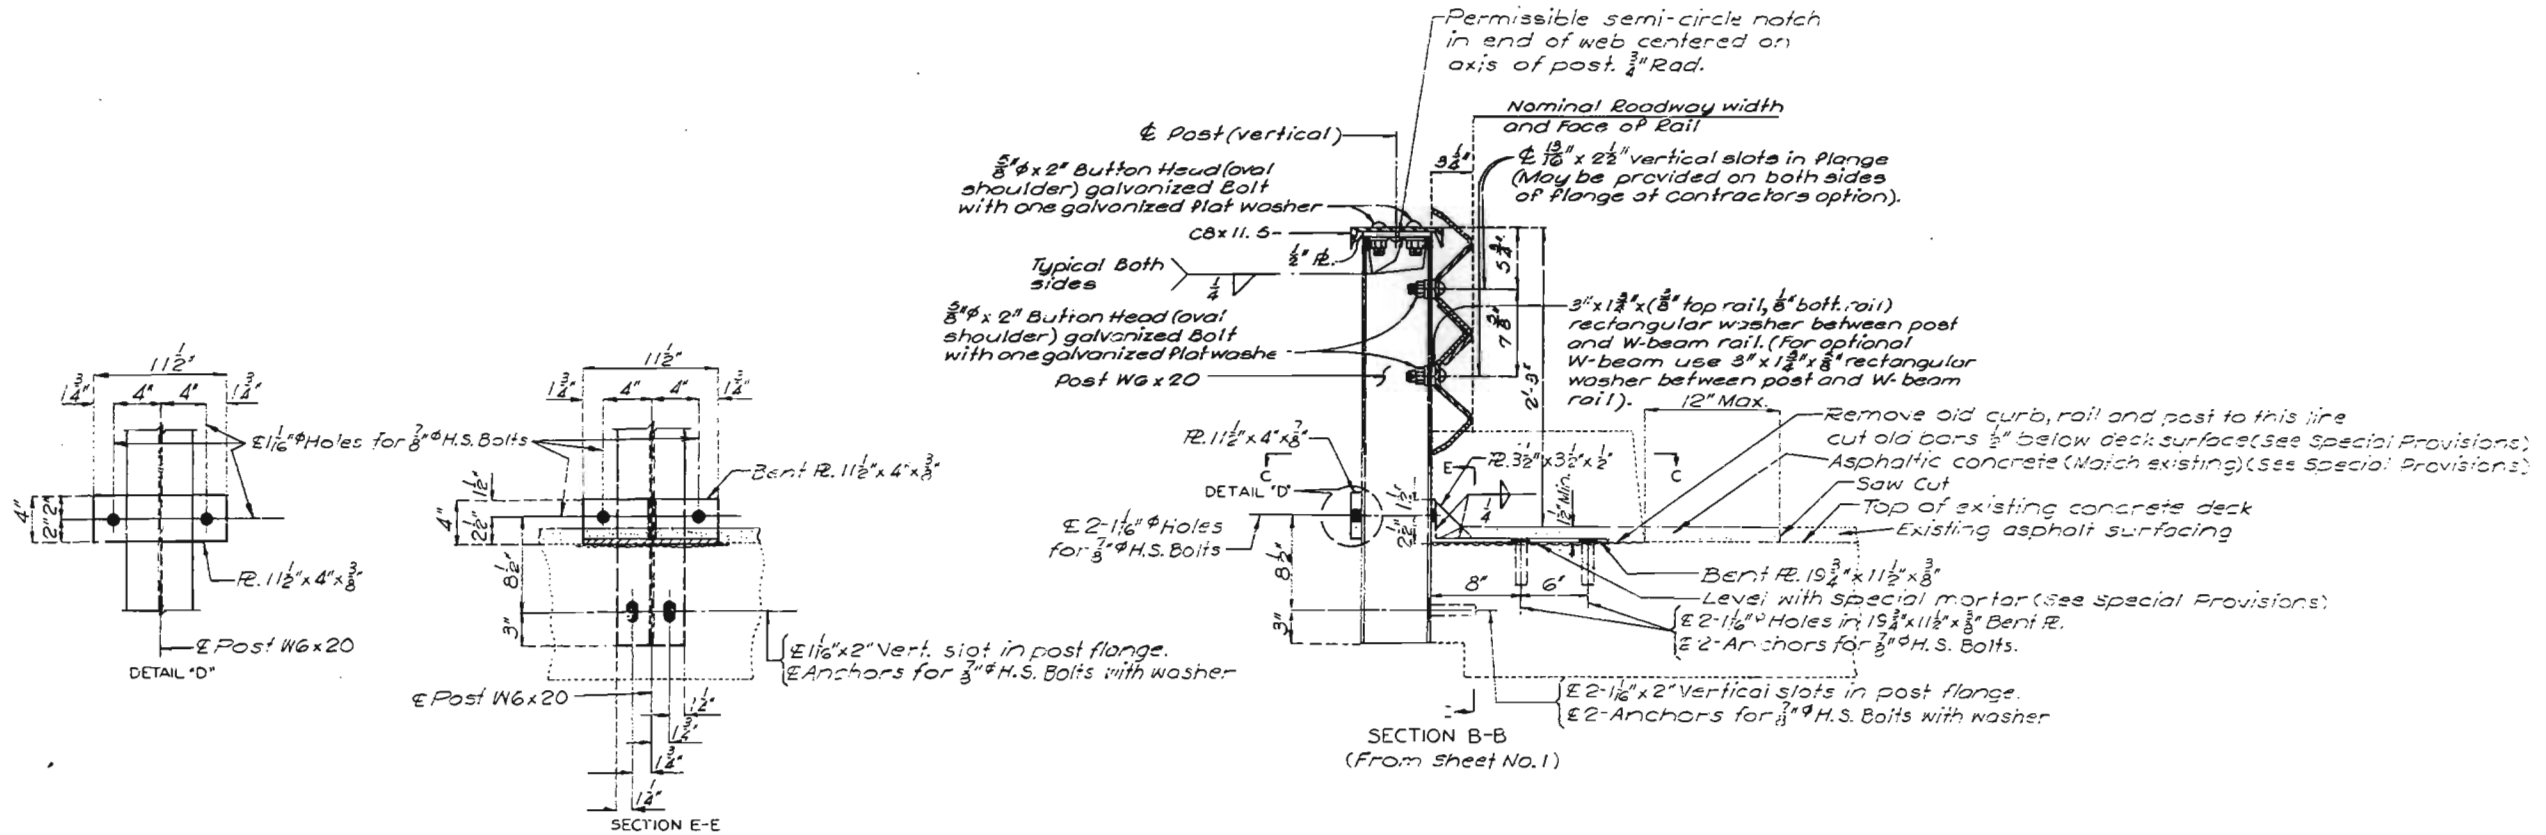 11 1/2"
1 3/4" 4" 4" 1 3/4"
4" 2" 2"
PL. 11 1/2" x 4" x 3/8"
℄ Post W6 x 20
DETAIL "D"
℄ 1 1/16" ⌀ Holes for 7/8" ⌀ H.S. Bolts
11 1/2"
1 3/4" 4" 4" 1 3/4"
Bent PL. 11 1/2" x 4" x 3/8"
4" 2 1/2" 1 1/2"
8 1/2"
3"
℄ 1 1/16" x 2" Vert. slot in post flange.
℄ Anchors for 7/8" ⌀ H.S. Bolts with washer
℄ Post W6 x 20
1 1/2"
1 3/4"
1 3/4"
1 1/4"
SECTION E-E
Permissible semi-circle notch
in end of web centered on
axis of post. 3/4" Rad.
Nominal Roadway width
and Face of Rail
℄ Post (vertical)
3 1/4"
℄ 13/16" x 2 1/2" vertical slots in flange
(May be provided on both sides
of flange at contractors option).
5/8" ⌀ x 2" Button Head (oval
shoulder) galvanized Bolt
with one galvanized flat washer
C8 x 11.5
1/2" PL.
Typical Both
sides
1/4
5/8" ⌀ x 2" Button Head (oval
shoulder) galvanized Bolt
with one galvanized flat washe
Post W6 x 20
5 3/4"
7 5/8"
2'-3"
3" x 1 3/4" x (3/8" top rail, 1/8" bott. rail)
rectangular washer between post
and W-beam rail. (For optional
W-beam use 3" x 1 3/4" x 3/8" rectangular
washer between post and W-beam
rail).
12" Max.
Remove old curb, rail and post to this line
cut old bars 1/2" below deck surface (See Special Provisions)
Asphaltic concrete (Match existing) (See Special Provisions)
Saw Cut
Top of existing concrete deck
Existing asphalt surfacing
PL. 11 1/2" x 4" x 7/8"
C
DETAIL "D"
E
PL. 3 1/2" x 3 1/2" x 1/2"
C
1/4
1/2" Min.
℄ 2-1 1/16" ⌀ Holes
for 7/8" ⌀ H.S. Bolts
2 1/2" 1 1/2"
8 1/2"
3"
8" 6"
Bent PL. 19 3/4" x 11 1/2" x 3/8"
Level with special mortar (See Special Provisions)
℄ 2-1 1/16" ⌀ Holes in 19 3/4" x 11 1/2" x 3/8" Bent PL.
℄ 2-Anchors for 7/8" ⌀ H.S. Bolts.
℄ 2-1 1/16" x 2" Vertical slots in post flange.
℄ 2-Anchors for 7/8" ⌀ H.S. Bolts with washer
SECTION B-B
(From Sheet No. 1)